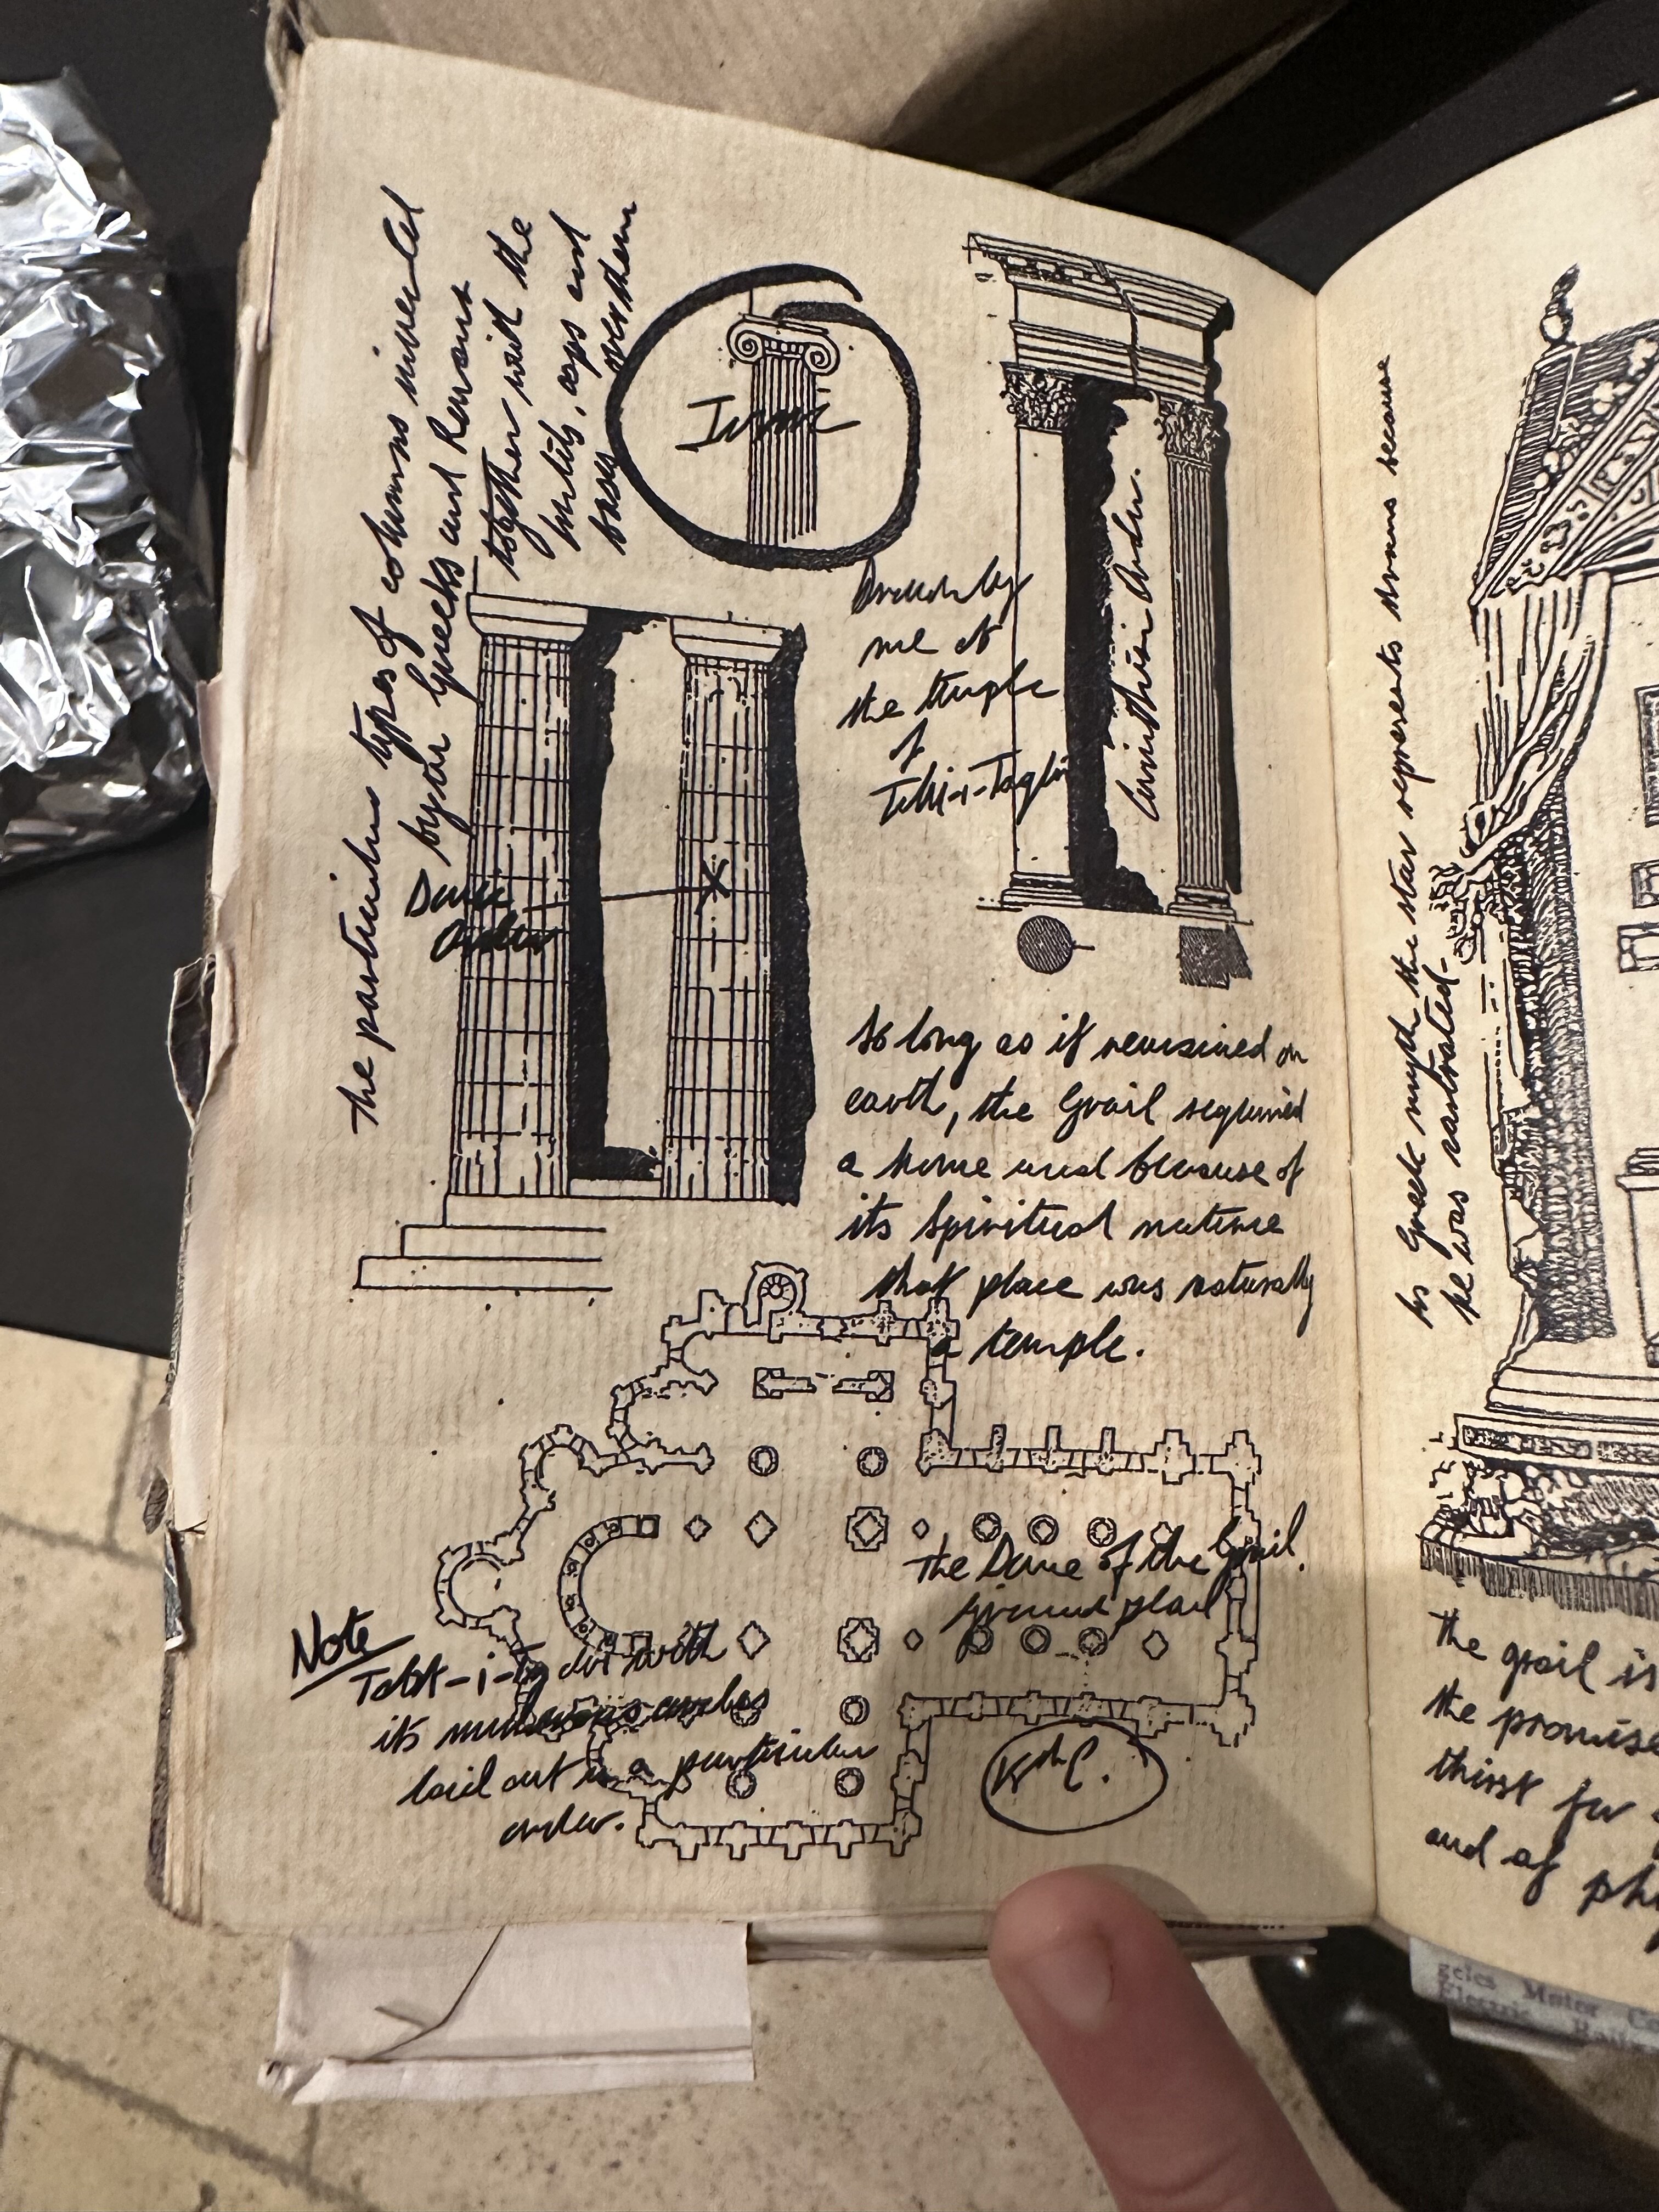 The particular types of columns invented
by the Greeks and Romans
together with the
caps and
bases over them
Ionic
Doric
Order
Drawn by
me at
the temple
of
Corinthian Order.
So long as it remained on
earth, the Grail required
a home and because of
its spiritual nature
that place was naturally
a temple.
The Dome of the Grail.
ground plan
Note
with
its numerous arches
laid out in a particular
order.
In Greek myth the star represents Uranus because
he was castrated-
The grail is
the promise
thirst for
and of
geles Motor Co
Electric